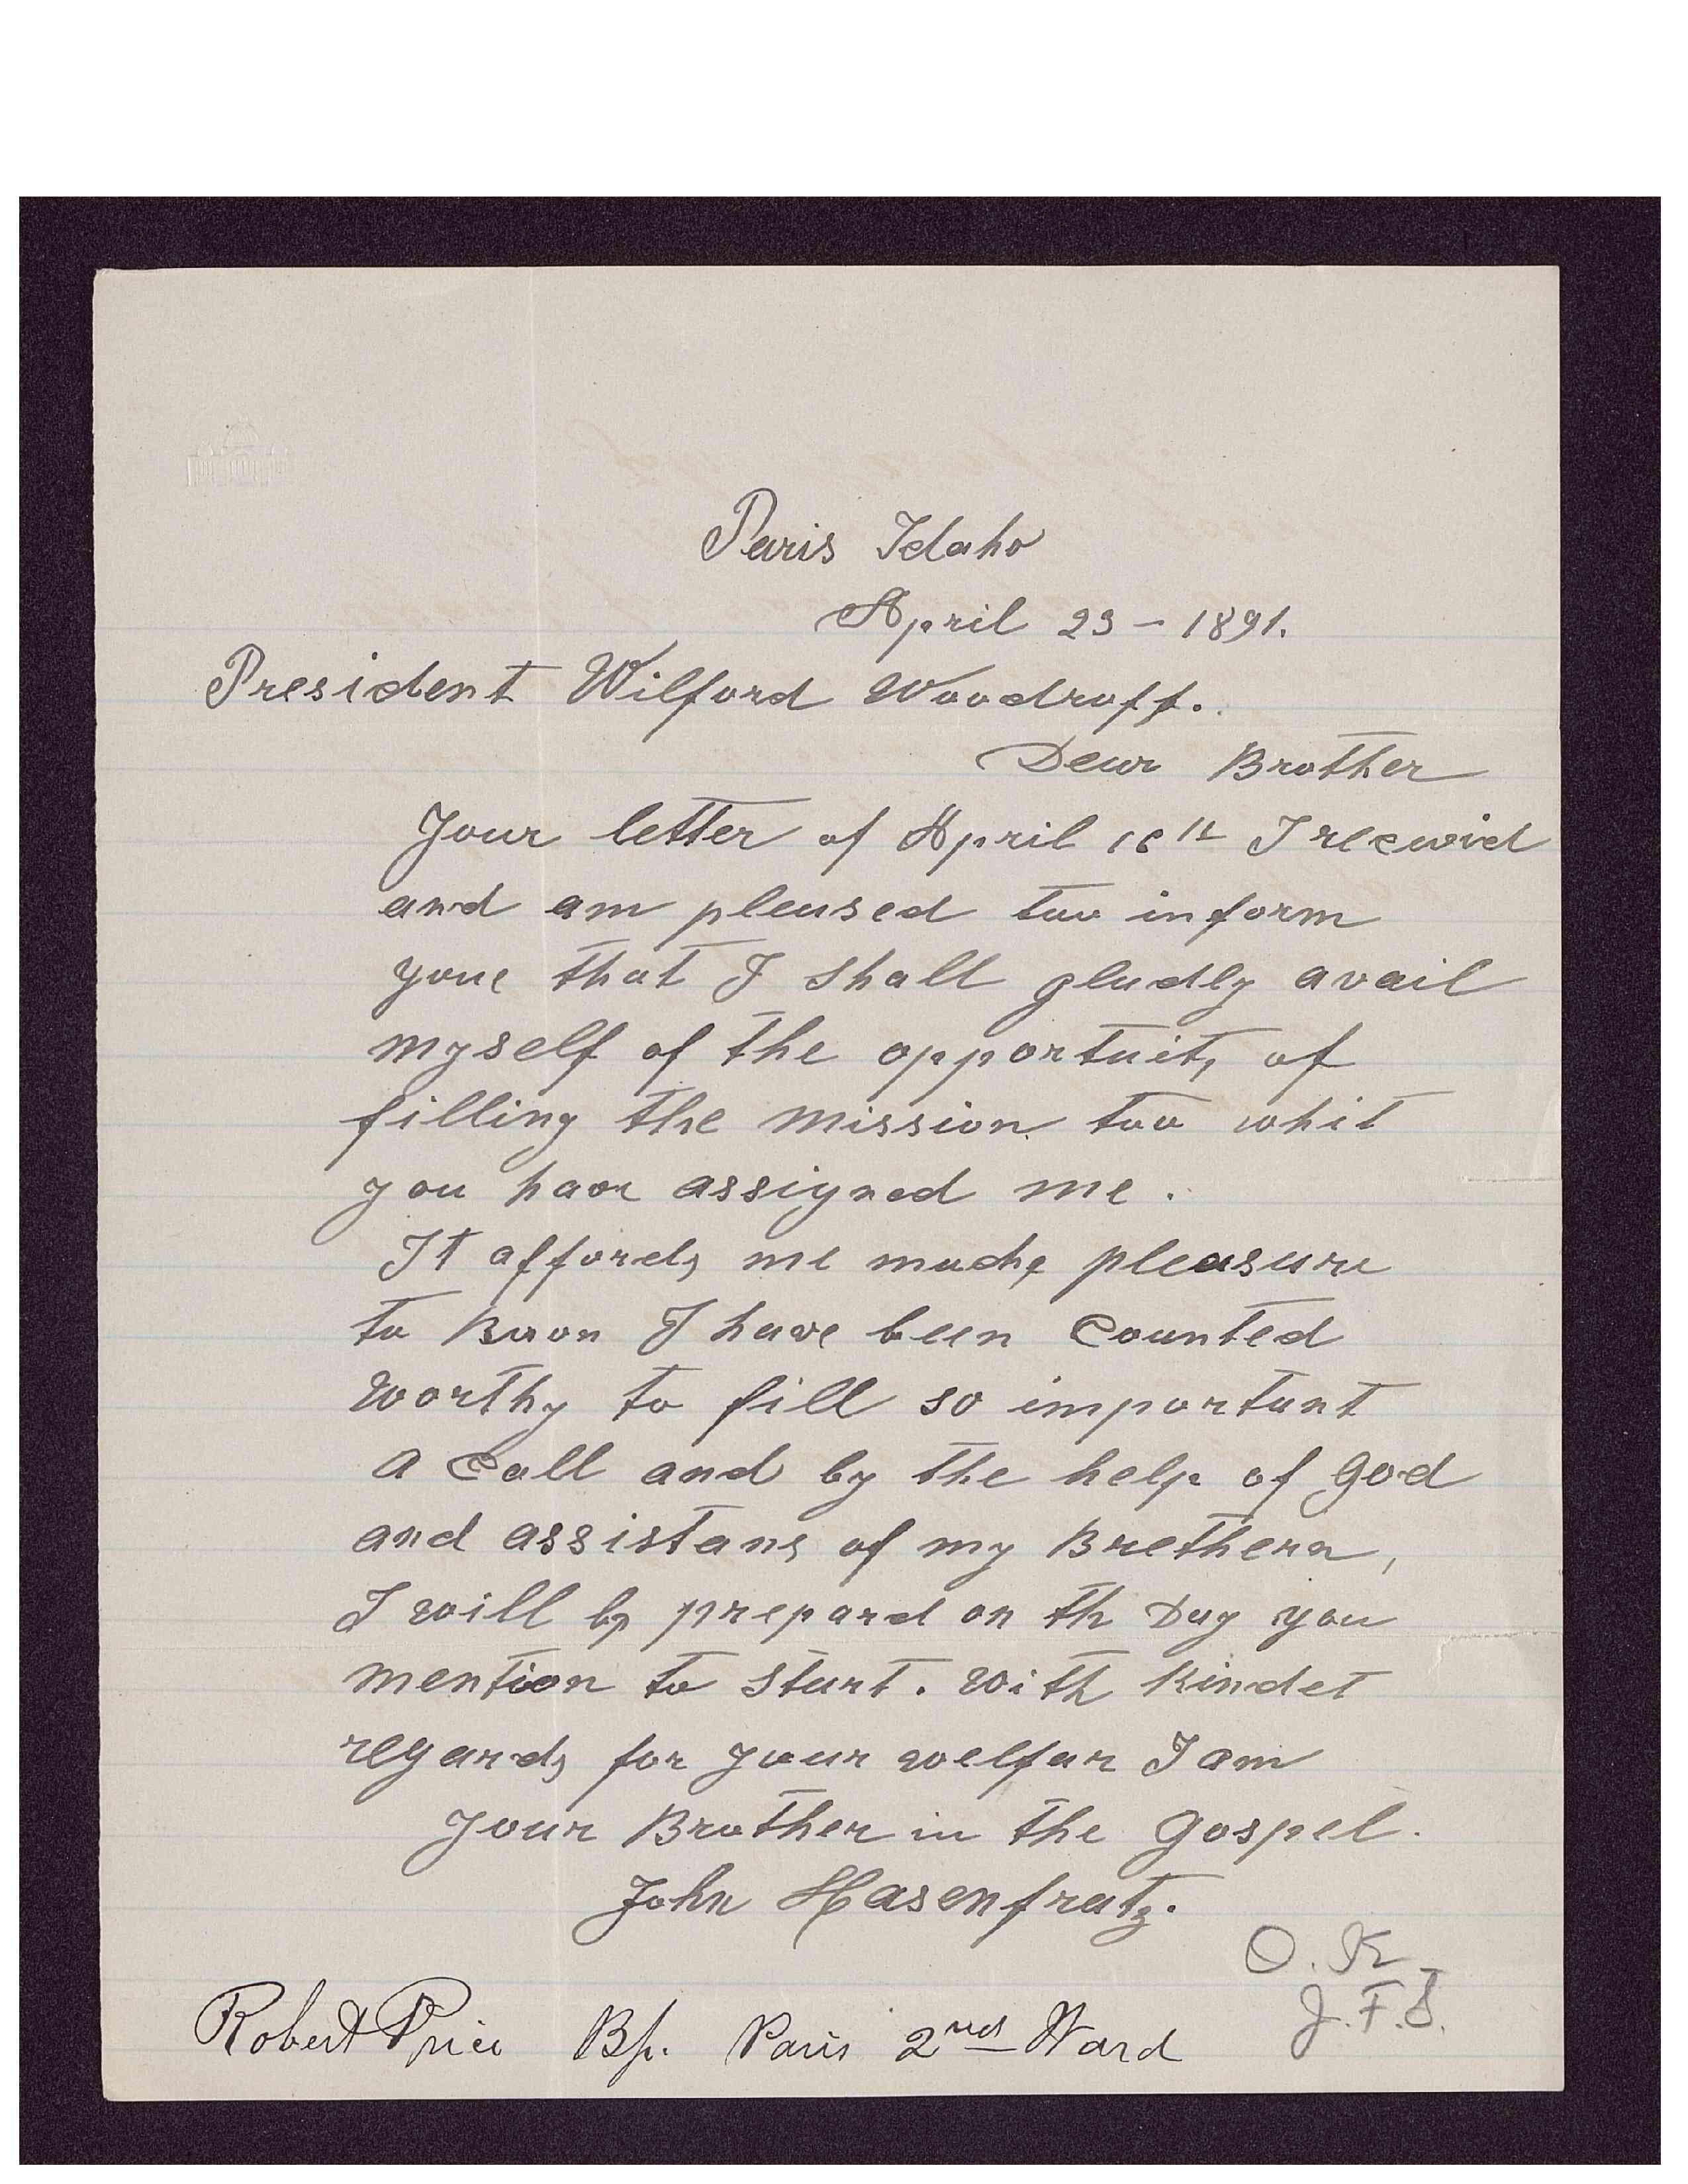 Paris Idaho
April 23 – 1891.
President Wilford Woodruff.
Dear Brother
Your letter of April 16th I recewid
and am pleased too inform
youe that I shall gladly avail
myself of the opportuity of
filling the Mission too whit
you have assigned me.
It affords me muche pleasure
to Know I have been Counted
worthy to fill so important
a Call and by the help of God
and assistans of my Brethern,
I will by prepard on th Day you
mention to start. With Kindet
regards for your welfar I am
Your Brother in the Gospel.
John Hasenfratz.
O. K
J. F. S.
Robert Price Bp. Paris 2nd Ward